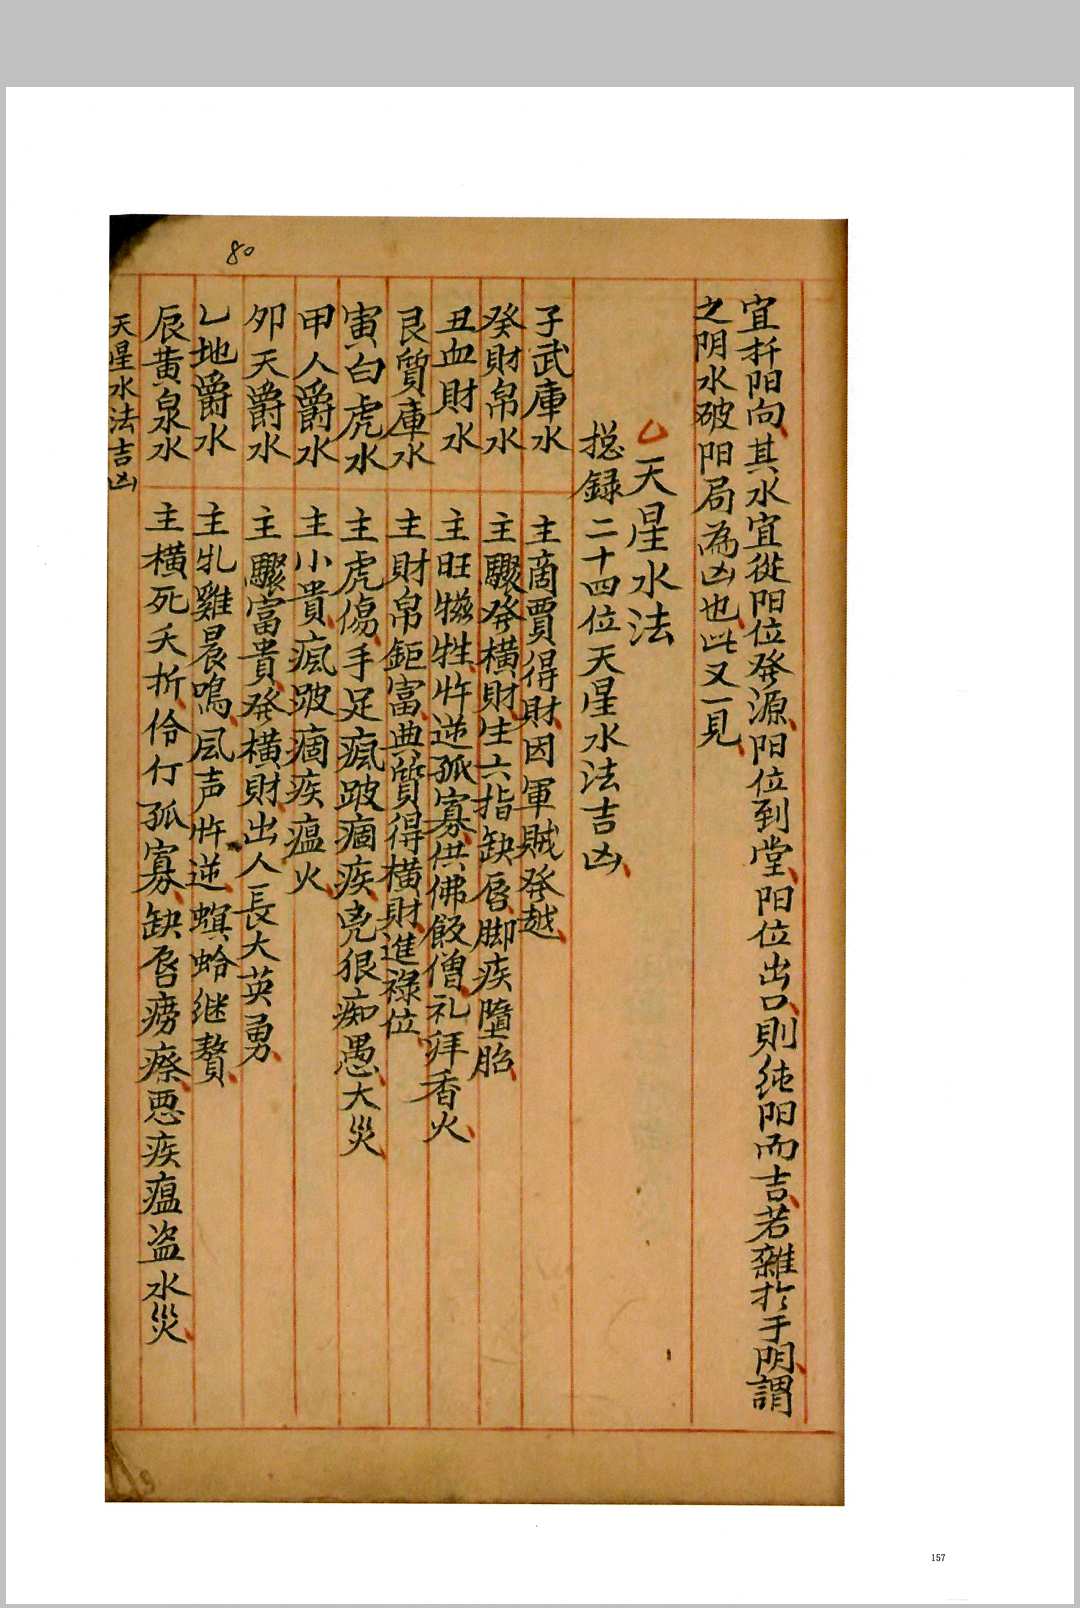 80
宜扦阳向其水宜從阳位發源阳位到堂阳位出口則純阳而吉若雜扵于阴謂
之阴水破阳局為凶也此又一見
天星水法
摠録二十四位天星水法吉凶
子武庫水 主商賈得財因軍賊發越
癸財帛水 主驟發橫財生六指缺唇脚疾墮胎
丑血財水 主旺犧牲忤逆孤寡供佛飯僧礼拜香火
艮質庫水 主財帛鉅富典質得橫財進祿位
寅白虎水 主虎傷手足瘋跛痼疾兇狠痴愚大災
甲人爵水 主小貴瘋跛痼疾瘟火
夘天爵水 主驟富貴發橫財出人長大英勇
乙地爵水 主牝雞晨鳴風声忤逆螟蛉継贅
辰黃泉水 主橫死夭折伶仃孤寡缺唇癆瘵悪疾瘟盗水災
天星水法吉凶
157